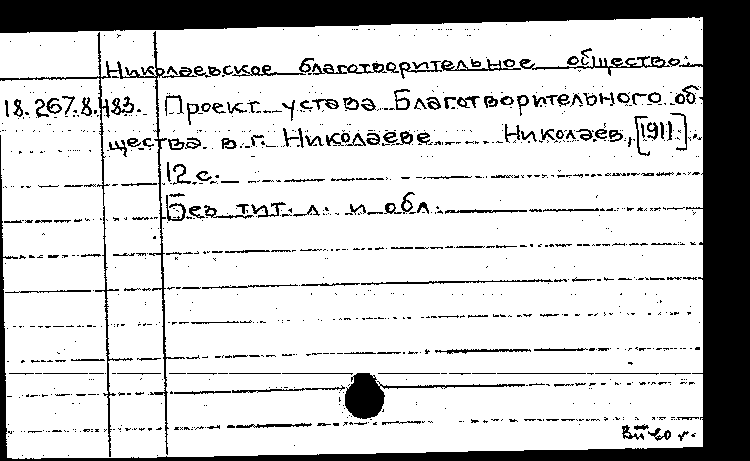 Николаевское благотворительное общество.
18.267.8.483. Проект устава Благотворительного об-
щества в г. Николаеве Николаев, [1911].
12 с.
Без тит. л. и обл.